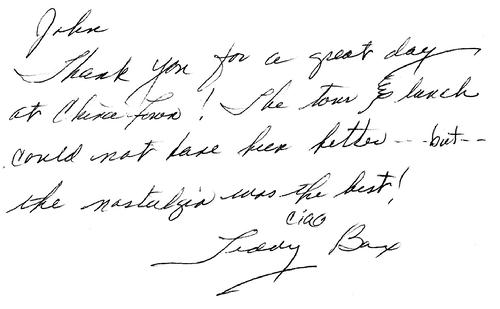 John
Thank you for a great day
at China Town! The tour & lunch
could not have been better -- but --
the nostalgia was the best!
Ciao
Teddy Bax